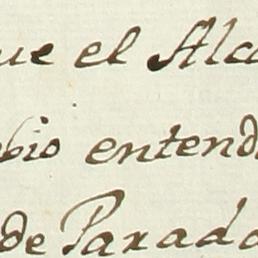 ue el Alca
bio entend
de Parada